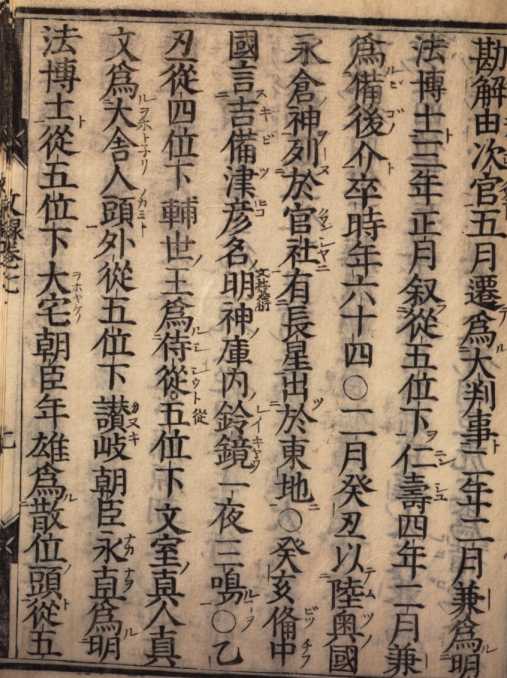 勘解由次官五月遷爲大判事二年二月兼爲明
法博士三年正月叙從五位下仁壽四年二月兼
爲備後介卒時年六十四○二月癸丑以陸奧國
永倉神列於官社有長星出於東地○癸亥備中
國言吉備津彦名明神庫内鈴鏡一夜三鳴○乙
丑從四位下輔世王爲侍從五位下文室眞人眞
文爲大舍人頭外從五位下讃岐朝臣永直爲明
法博士從五位下大宅朝臣年雄爲散位頭從五